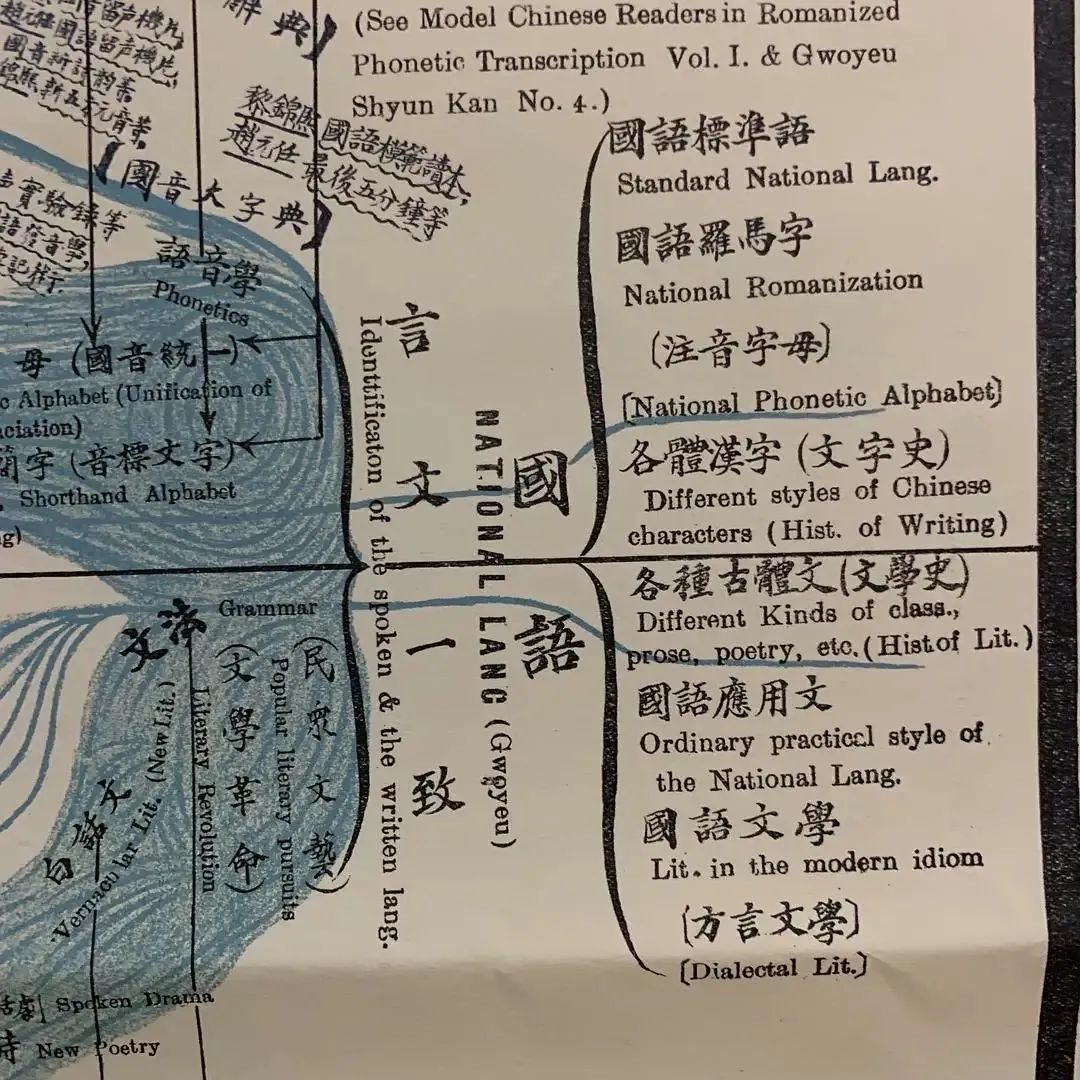 辭典】
(See Model Chinese Readers in Romanized
Phonetic Transcription Vol. I. & Gwoyeu
Shyun Kan No. 4.)
趙元任國語留声機片,
國音新詩韵等.
黎錦熙 國語模範讀本,
趙元任 最後五分鐘等
【國音大字典】
實驗錄等
語音學
Phonetics
母 (國音統一)
Alphabet (Unification of
簡字 (音標文字)
Shorthand Alphabet
言文一致
Identtificaton of the spoken & the written lang.
國語
NATIONAL LANG (Gwoyeu)
國語標準語
Standard National Lang.
國語羅馬字
National Romanization
(注音字母)
[National Phonetic Alphabet]
各體漢字 (文字史)
Different styles of Chinese
characters (Hist. of Writing)
各種古體文(文學史)
Different Kinds of class.,
prose, poetry, etc. (Hist of Lit.)
國語應用文
Ordinary practical style of
the National Lang.
國語文學
Lit. in the modern idiom
(方言文學)
[Dialectal Lit.]
文法 Grammar
(民眾文藝)
Popular literary pursuits
(文學革命)
Literary Revolution
(New Lit.)
白話文
Vernacular Lit.
話劇 Spoken Drama
詩 New Poetry